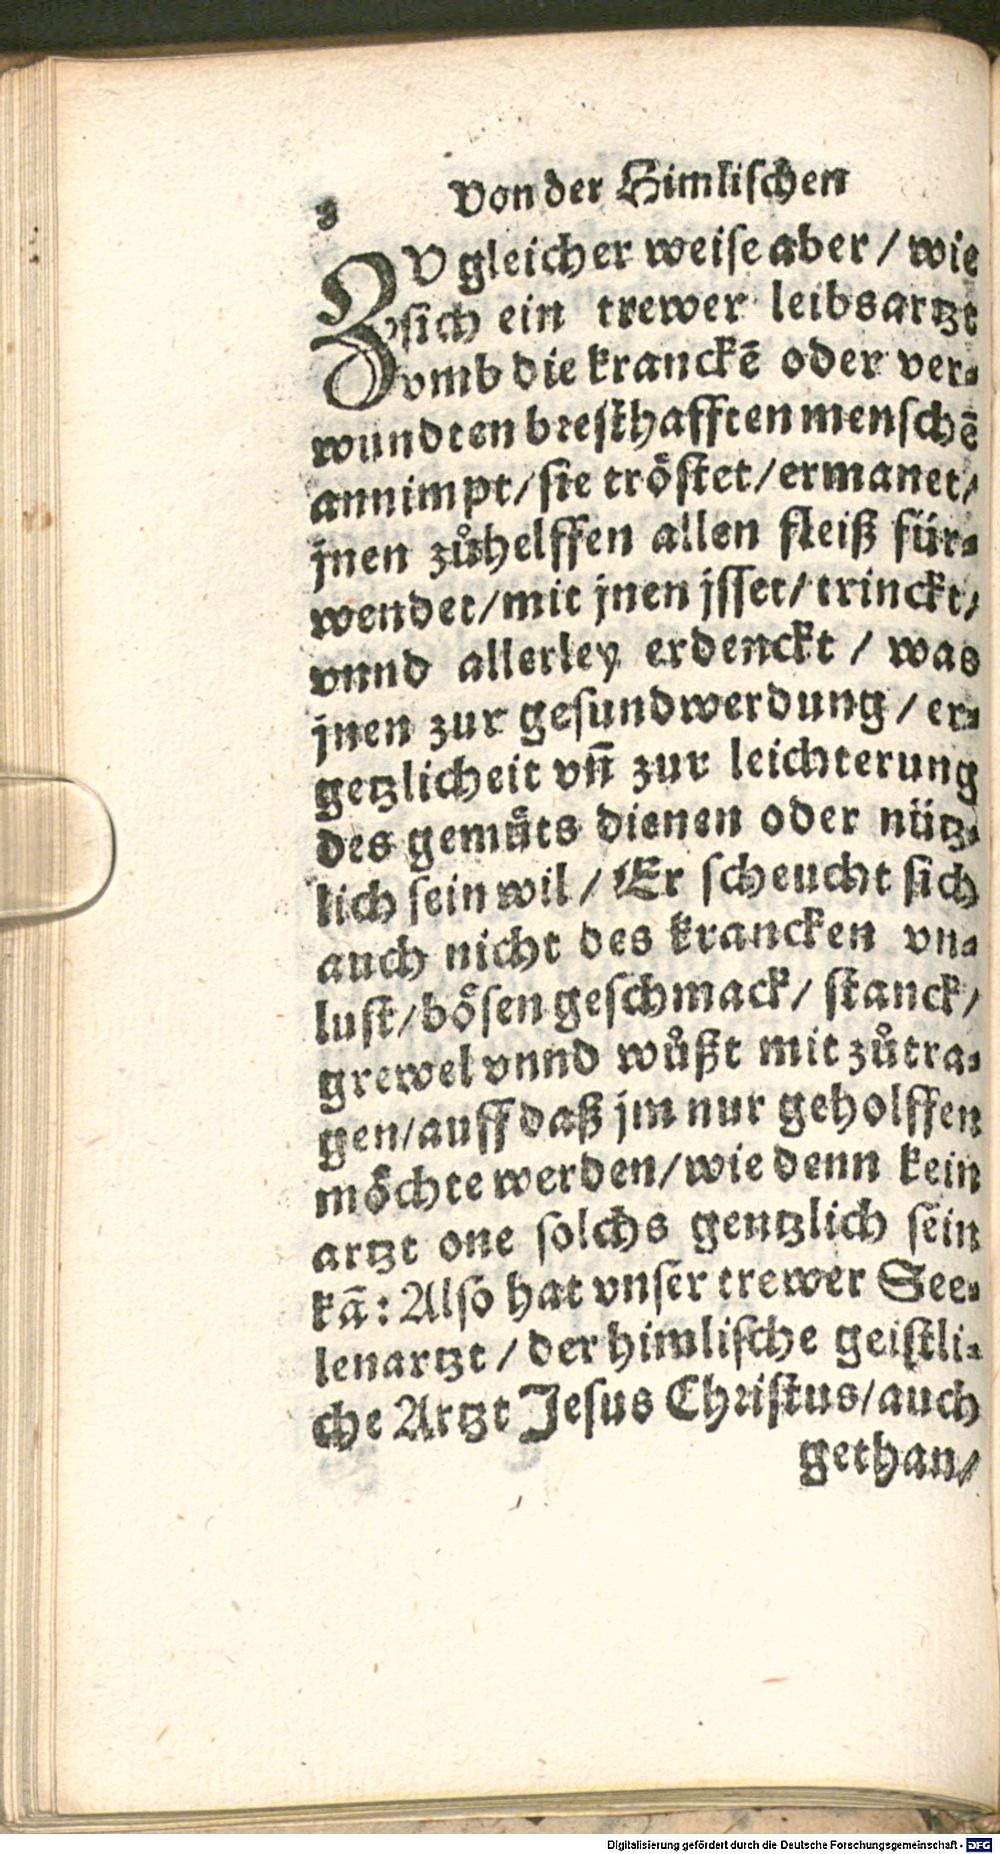 8 Von der Himlischen
ZV gleicher weise aber / wie
sich ein trewer leibsartzt
vmb die kranckē oder ver-
wundten bresthafften menschē
annimpt / sie tröstet / ermanet /
jnen zůhelffen allen fleiß für-
wendet / mit jnen jsset / trinckt /
vnnd allerley erdenckt / was
jnen zur gesundwerdung / er-
getzlicheit vn̄ zur leichterung
des gemüts dienen oder nütz-
lich sein wil / Er scheucht sich
auch nicht des krancken vn-
lust / bösen geschmack / stanck /
grewel vnnd wůßt mit zůtra-
gen / auff daß jm nur geholffen
möchte werden / wie denn kein
artzt one solchs gentzlich sein
kā : Also hat vnser trewer See-
lenartzt / der himlische geistli-
che Artzt Jesus Christus / auch
gethan /
Digitalisierung gefördert durch die Deutsche Forschungsgemeinschaft - DFG